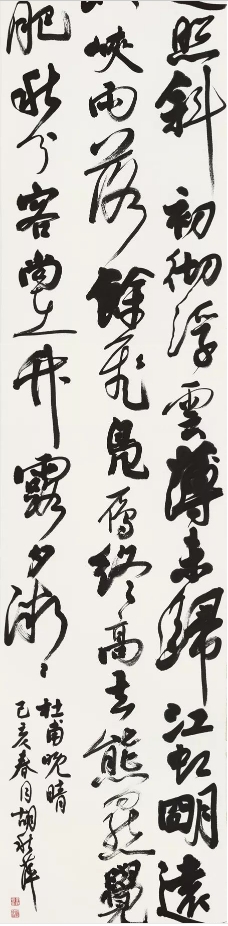 照斜初彻浮雲薄未歸江虹明遠
峽雨落餘飛鳧雁終高去熊羆覺
肥秋分客尚在竹露夕微微
杜甫晚晴
己亥春月胡秋萍